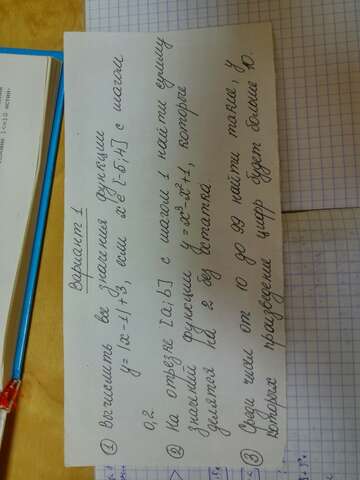 Вариант 1
① Вычислить все значения функции
y = |x - 1| + 3, если x ∈ [-5; 4] с шагом
0,2
② На отрезке [a; b] с шагом 1 найти сумму
значений функции y = x³ - x² + 1, которые
делятся на 2 без остатка
③ Среди чисел от 10 до 99 найти такие, у
которых произведение цифр будет больше 10.